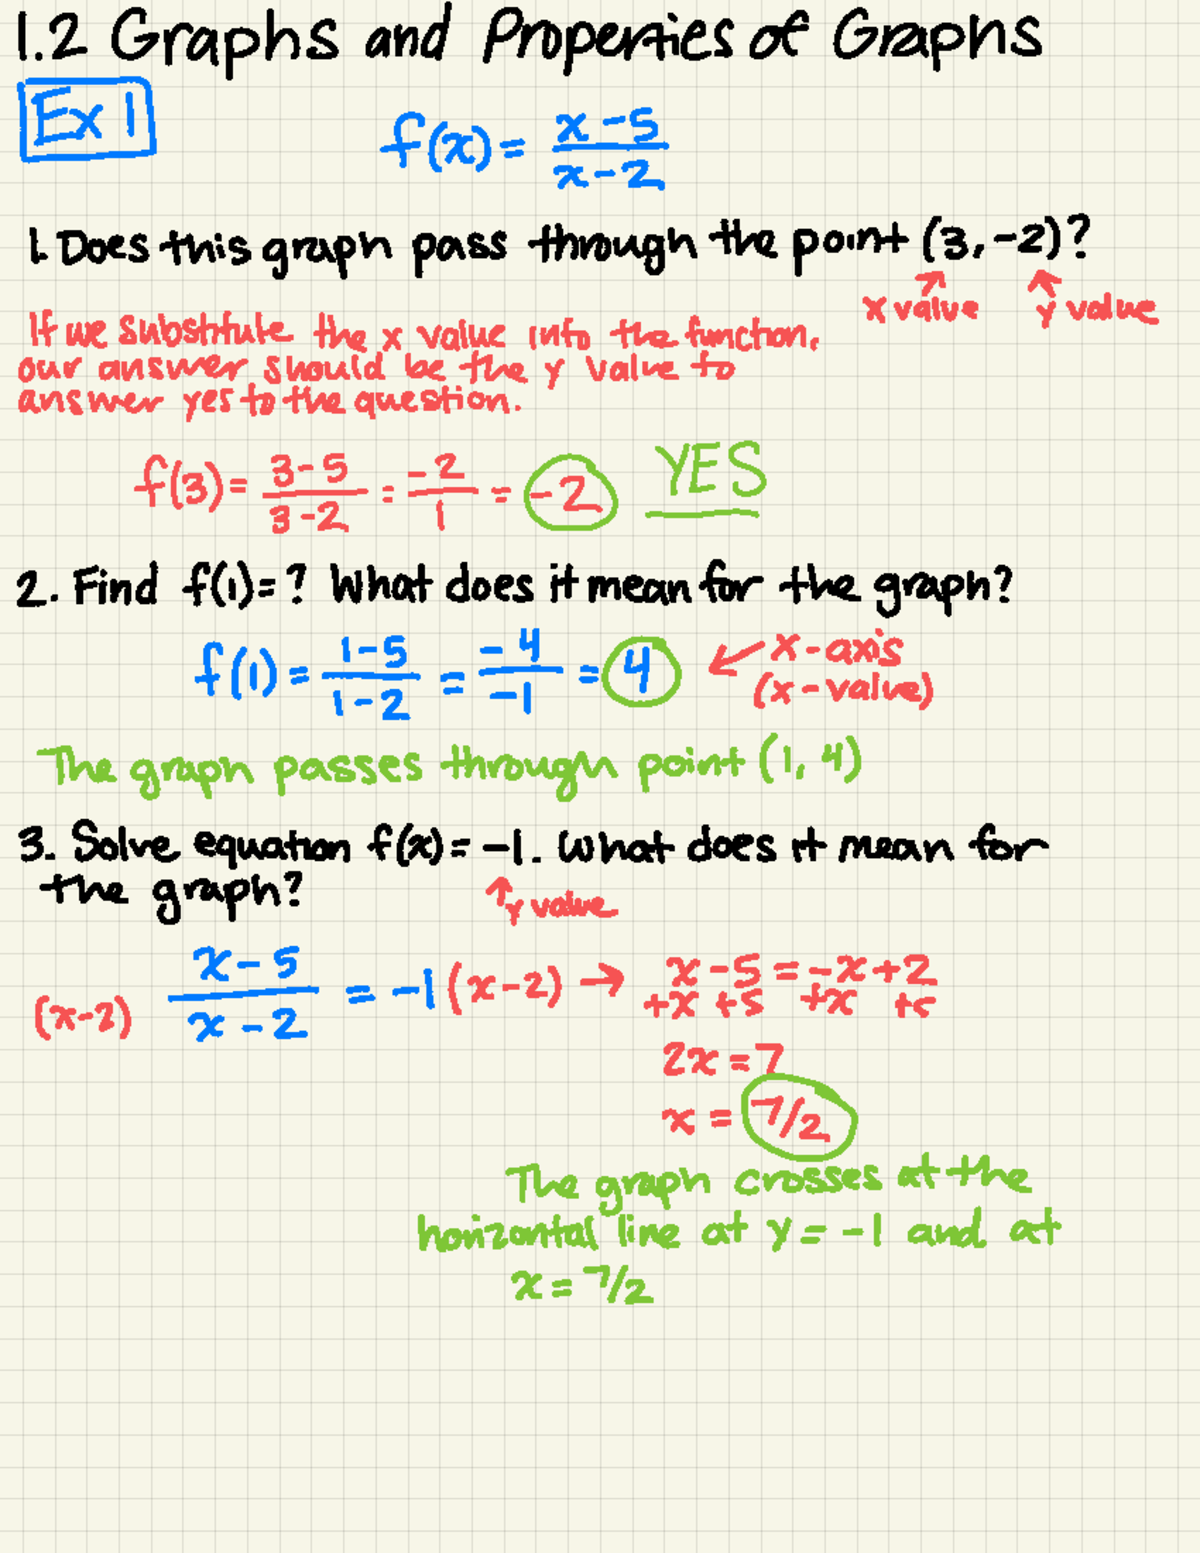 1.2 Graphs and Properties of Graphs
Ex 1
f(x) = x-5 / x-2
1. Does this graph pass through the point (3, -2)?
x value y value
If we substitute the x value into the function,
our answer should be the y value to
answer yes to the question.
f(3) = 3-5 / 3-2 = -2 / 1 = -2 YES
2. Find f(1)= ? What does it mean for the graph?
f(1) = 1-5 / 1-2 = -4 / -1 = 4 ← x-axis
(x-value)
The graph passes through point (1, 4)
3. Solve equation f(x) = -1. What does it mean for
the graph?
↑ y value
(x-2) x-5 / x-2 = -1 (x-2) → x-5 = -x+2
+x +5 +x +5
2x = 7
x = 7/2
The graph crosses at the
horizontal line at y = -1 and at
x = 7/2